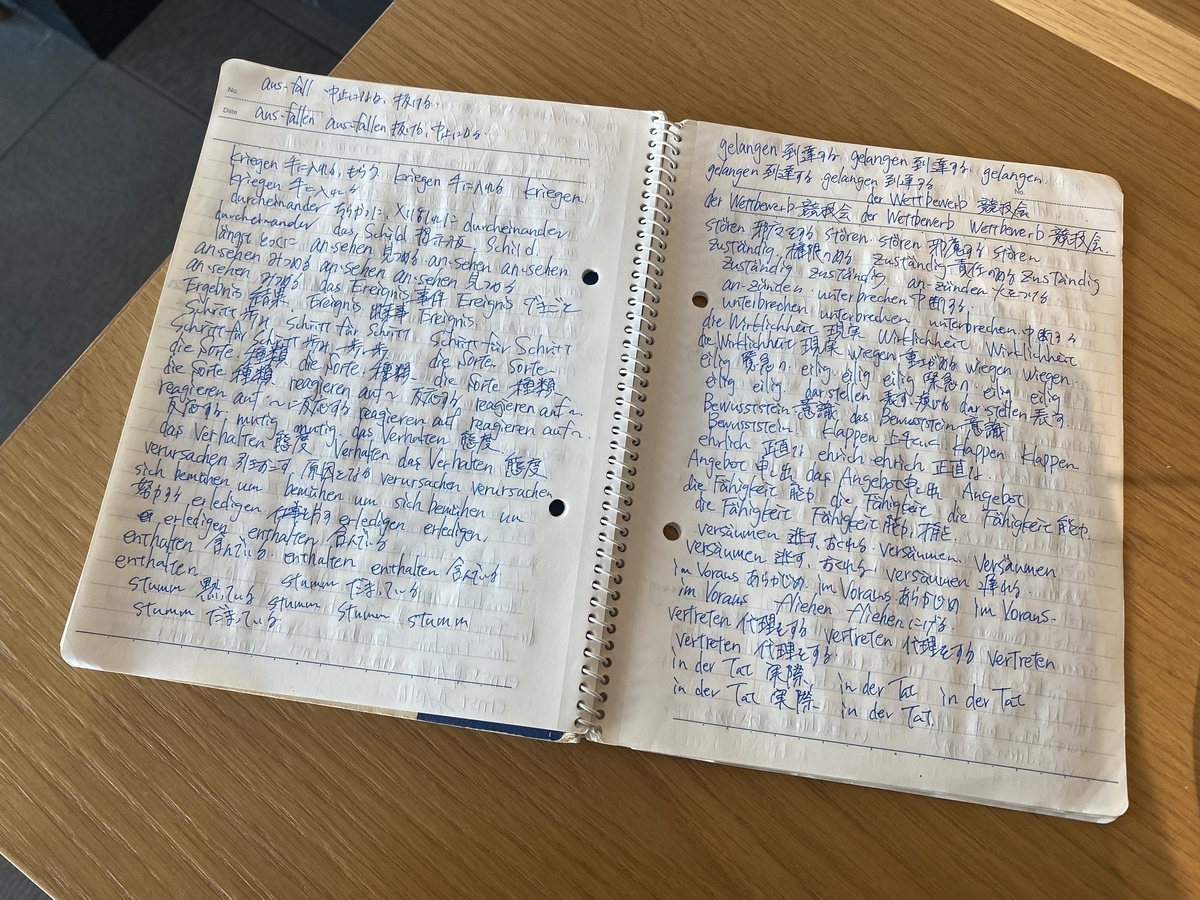 No.
aus-fall 中止になる、抜ける.
Date
aus-fallen aus-fallen 抜ける, 中止になる.
kriegen 手に入れる, もらう kriegen 手に入れる kriegen
kriegen 手に入れる
durcheinander ちらかった, durcheinander
durcheinander das Schild 掲示板, Schild.
längst とっくに an-sehen 見つめる an-sehen an-sehen
an-sehen みつめる an-sehen an-sehen 見つめる
an-sehen みつめる das Ereignis 事件 Ereignis できごと
Ergebnis 結果 Ereignis Ereignis
Schritt 歩み. Schritt für Schritt Schritt für Schritt
Schritt für Schritt 歩み 一歩一歩
die Sorte. 種類 die Sorte. die Sorte. Sorte
die Sorte 種類 die Sorte. 種類 die Sorte 種類
reagieren auf ~に反応する reagieren auf ~
反応する mutig mutig reagieren auf reagieren auf ~.
das Verhalten 態度 das Verhalten 態度
verursachen 引きおこす Verhalten das Verhalten 態度
原因となる verursachen verursachen
sich bemühen um bemühen um sich bemühen um
努力する erledigen 仕事を片す erledigen erledigen,
erledigen enthalten 含んでいる
enthalten 含んでいる. enthalten enthalten 含んでいる
enthalten
stumm 黙っている stumm だまっている
stumm だまっている. stumm stumm stumm
gelangen 到達する gelangen 到達する gelangen
gelangen 到達する gelangen 到達する
No.
der Wettbewerb 競技会 der Wettbewerb 競技会
der Wettbewerb Wettbewerb 競技会.
stören 邪マをする stören. stören 邪魔する stören
zuständig, 権限のある zuständig 責任のある zuständig
zuständig zuständig an-zünden 火をつける
an-zünden unterbrechen 中断する.
unterbrechen unterbrechen unterbrechen 中断する
die Wirklichkeit 現実 Wirklichkeit Wirklichkeit
die Wirklichkeit 現実 wiegen 重さがある wiegen wiegen
eilig 緊急の. eilig. eilig eilig 緊急の. eilig eilig
eilig eilig. darstellen 表す darstellen 表す.
Bewusstsein 意識 das Bewusstsein 意識
Bewusststein. klappen 上手くいく klappen klappen
ehrlich 正直な ehrich ehrlich 正直な.
Angebot 申し出 das Angebot 申し出 Angebot
die Fähigkeit 能力 die Fähigkeit die Fähigkeit 能力
die Fähigkeit Fähigkeit 能力, 才能.
versäumen 逃す, おくれる. versäumen. versäumen
versäumen 逃す, おくれる versäumen 遅れる.
im Voraus あらかじめ im Voraus あらかじめ im Voraus.
im Voraus fliehen fliehen にげる
vertreten 代理をする vertreten 代理をする vertreten
vertreten 代理をする
in der Tat 実際、 in der Tat in der Tat
in der Tat 実際、 in der Tat